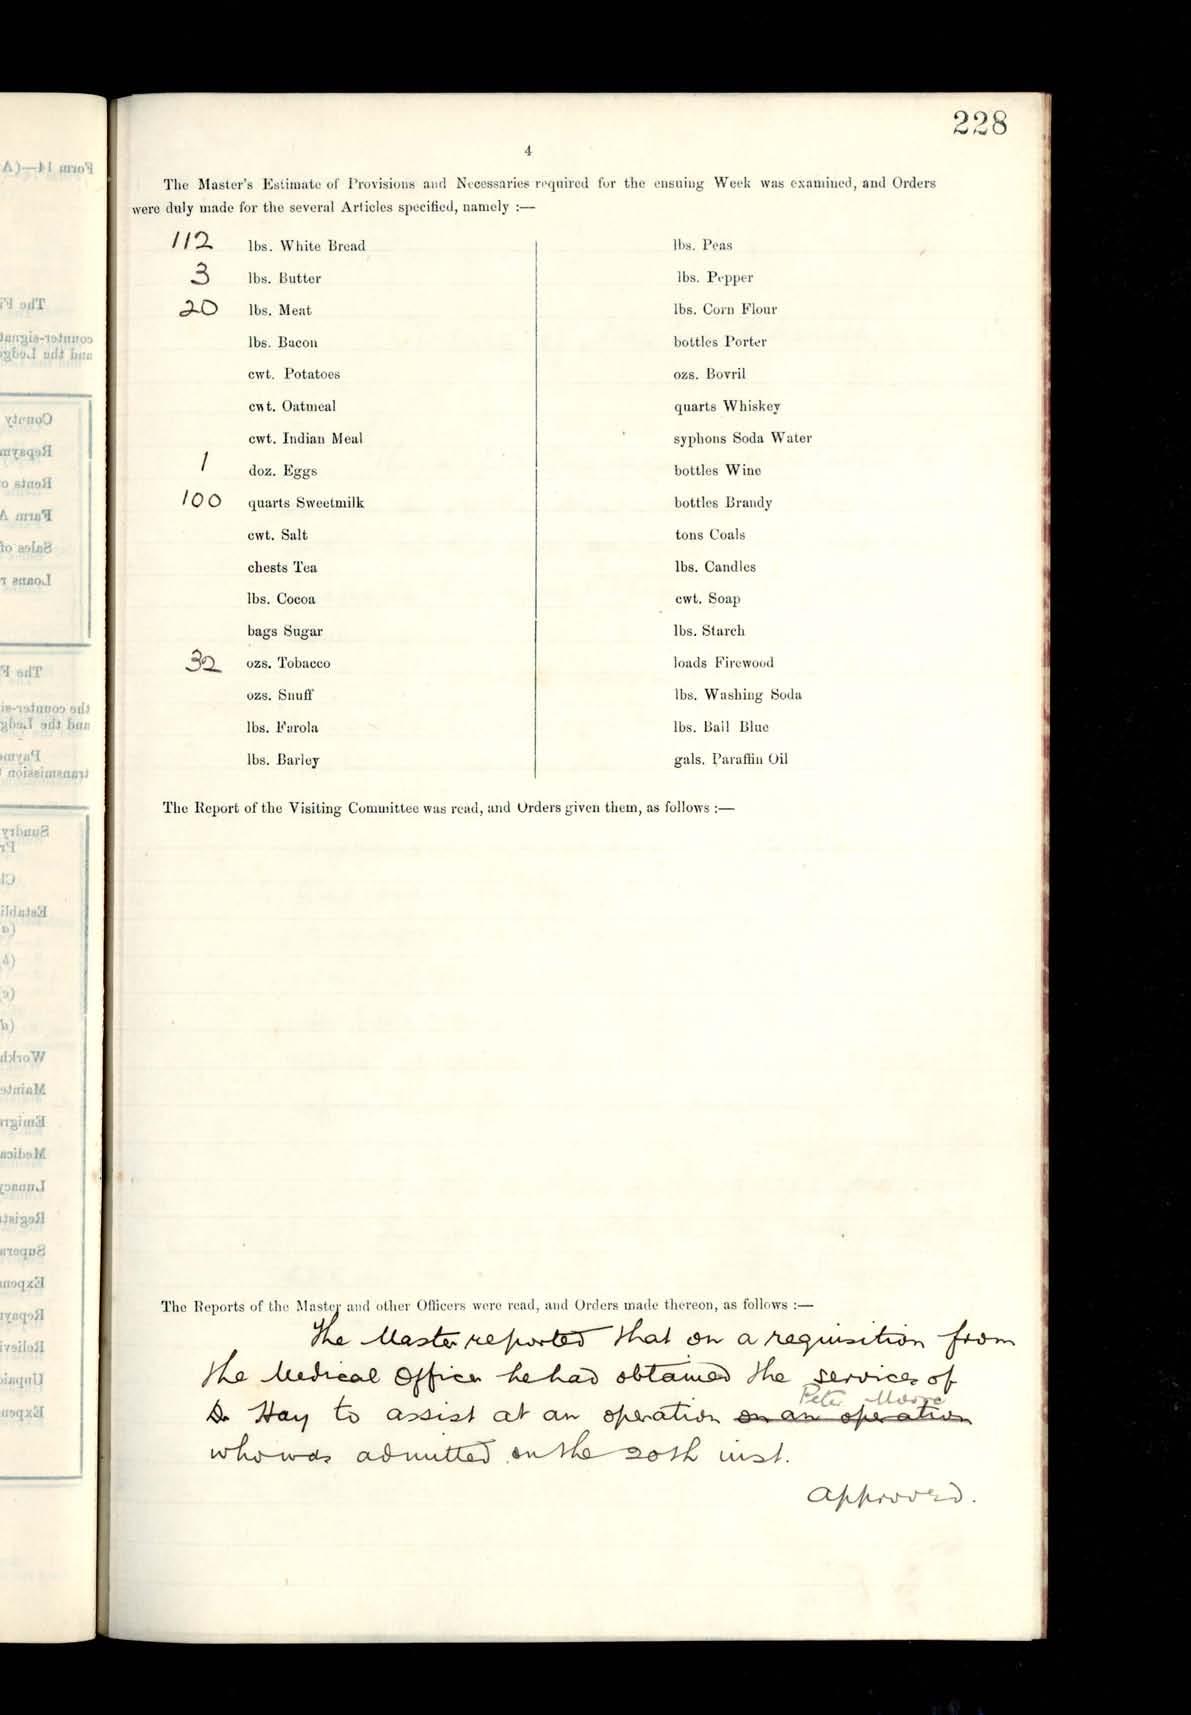 228
4
The Master's Estimate of Provisions and Necessaries required for the ensuing Week was examined, and Orders
were duly made for the several Articles specified, namely :—
112 lbs. White Bread
3 lbs. Butter
20 lbs. Meat
lbs. Bacon
cwt. Potatoes
cwt. Oatmeal
cwt. Indian Meal
1 doz. Eggs
100 quarts Sweetmilk
cwt. Salt
chests Tea
lbs. Cocoa
bags Sugar
32 ozs. Tobacco
ozs. Snuff
lbs. Farola
lbs. Barley
lbs. Peas
lbs. Pepper
lbs. Corn Flour
bottles Porter
ozs. Bovril
quarts Whiskey
syphons Soda Water
bottles Wine
bottles Brandy
tons Coals
lbs. Candles
cwt. Soap
lbs. Starch
loads Firewood
lbs. Washing Soda
lbs. Ball Blue
gals. Paraffin Oil
The Report of the Visiting Committee was read, and Orders given them, as follows :—
The Reports of the Master and other Officers were read, and Orders made thereon, as follows :—
The Master reported that on a requisition from
the Medical Officer he had obtained the services of
Peter Moore
Dr Hay to assist at an operation on an operation
who was admitted on the 20th inst.
Approved.